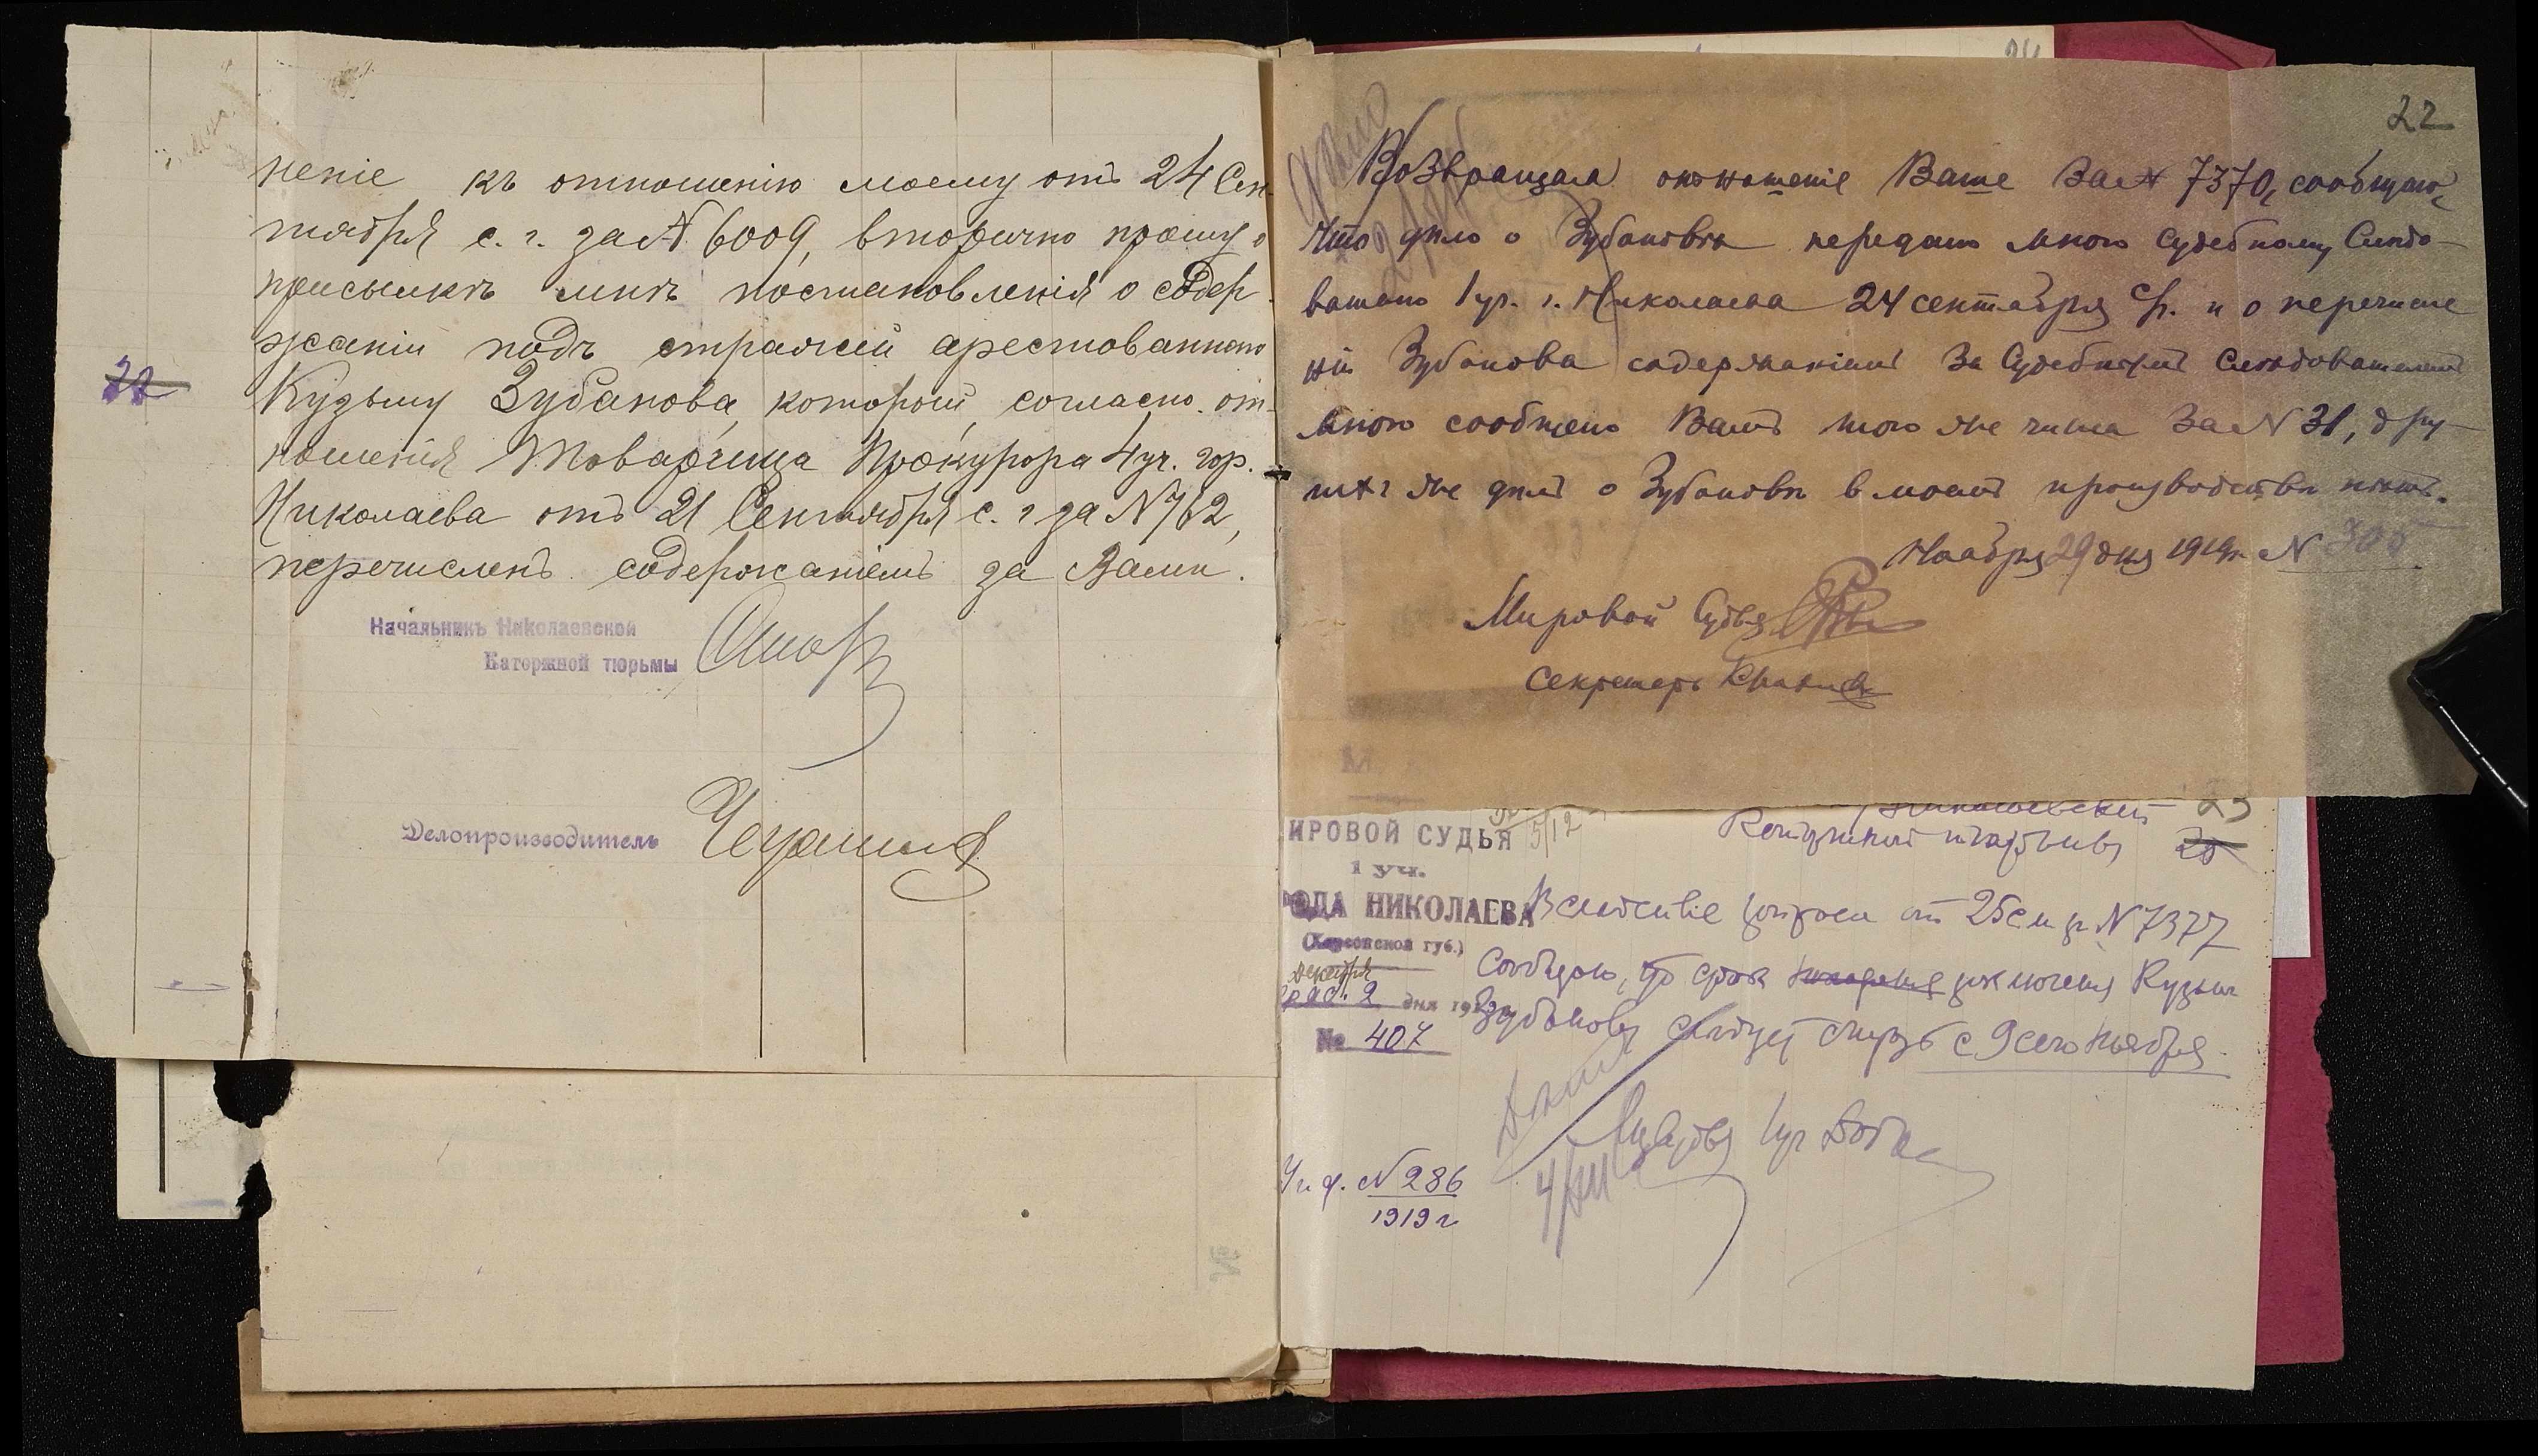 неніе къ отношенію моему отъ 24 Сен-
тября с. г. за № 6009, вторично прошу о
присылкѣ мнѣ постановленія о содер-
жаніи подъ стражей арестованнаго
Кузьму Зубанова, который, согласно от-
ношенія Товарища Прокурора 4 уч. гор.
Николаева отъ 21 Сентября с. г за № 762,
перечисленъ содержаніемъ за Вами.
Начальникъ Николаевской
Каторжной тюрьмы
Делопроизводитель
22
22
Возвращая отношеніе Ваше За № 7370, сообщаю,
что дѣло о Зубановѣ передано мною Судебному Слѣдо-
вателю 1 уч. г. Николаева 24 сентября с/г. и о перечисле
ніи Зубанова содержаніемъ За Судебнымъ Слѣдователемъ
мною сообщено Вамъ того же числа За № 31, дру-
гихъ же дѣлъ о Зубановѣ в моемъ производствѣ нѣтъ.
Ноября 29 дня 1919 г. № 305
Мировой Судья
Секретарь
23
Николаевской
Каторжной тюрьмы
20
ИРОВОЙ СУДЬЯ
5/12
1 уч.
ОДА НИКОЛАЕВА
(Херсонской губ.)
декабря
2 дня 19
№ 407
Вследствіе запроса от 25 с м за № 7377
Сообщаю, что срок заключения Кузьмы
Зубанову следует считать с 9 сего Ноября
Уч 1 уч
У. д. № 286
1919 г